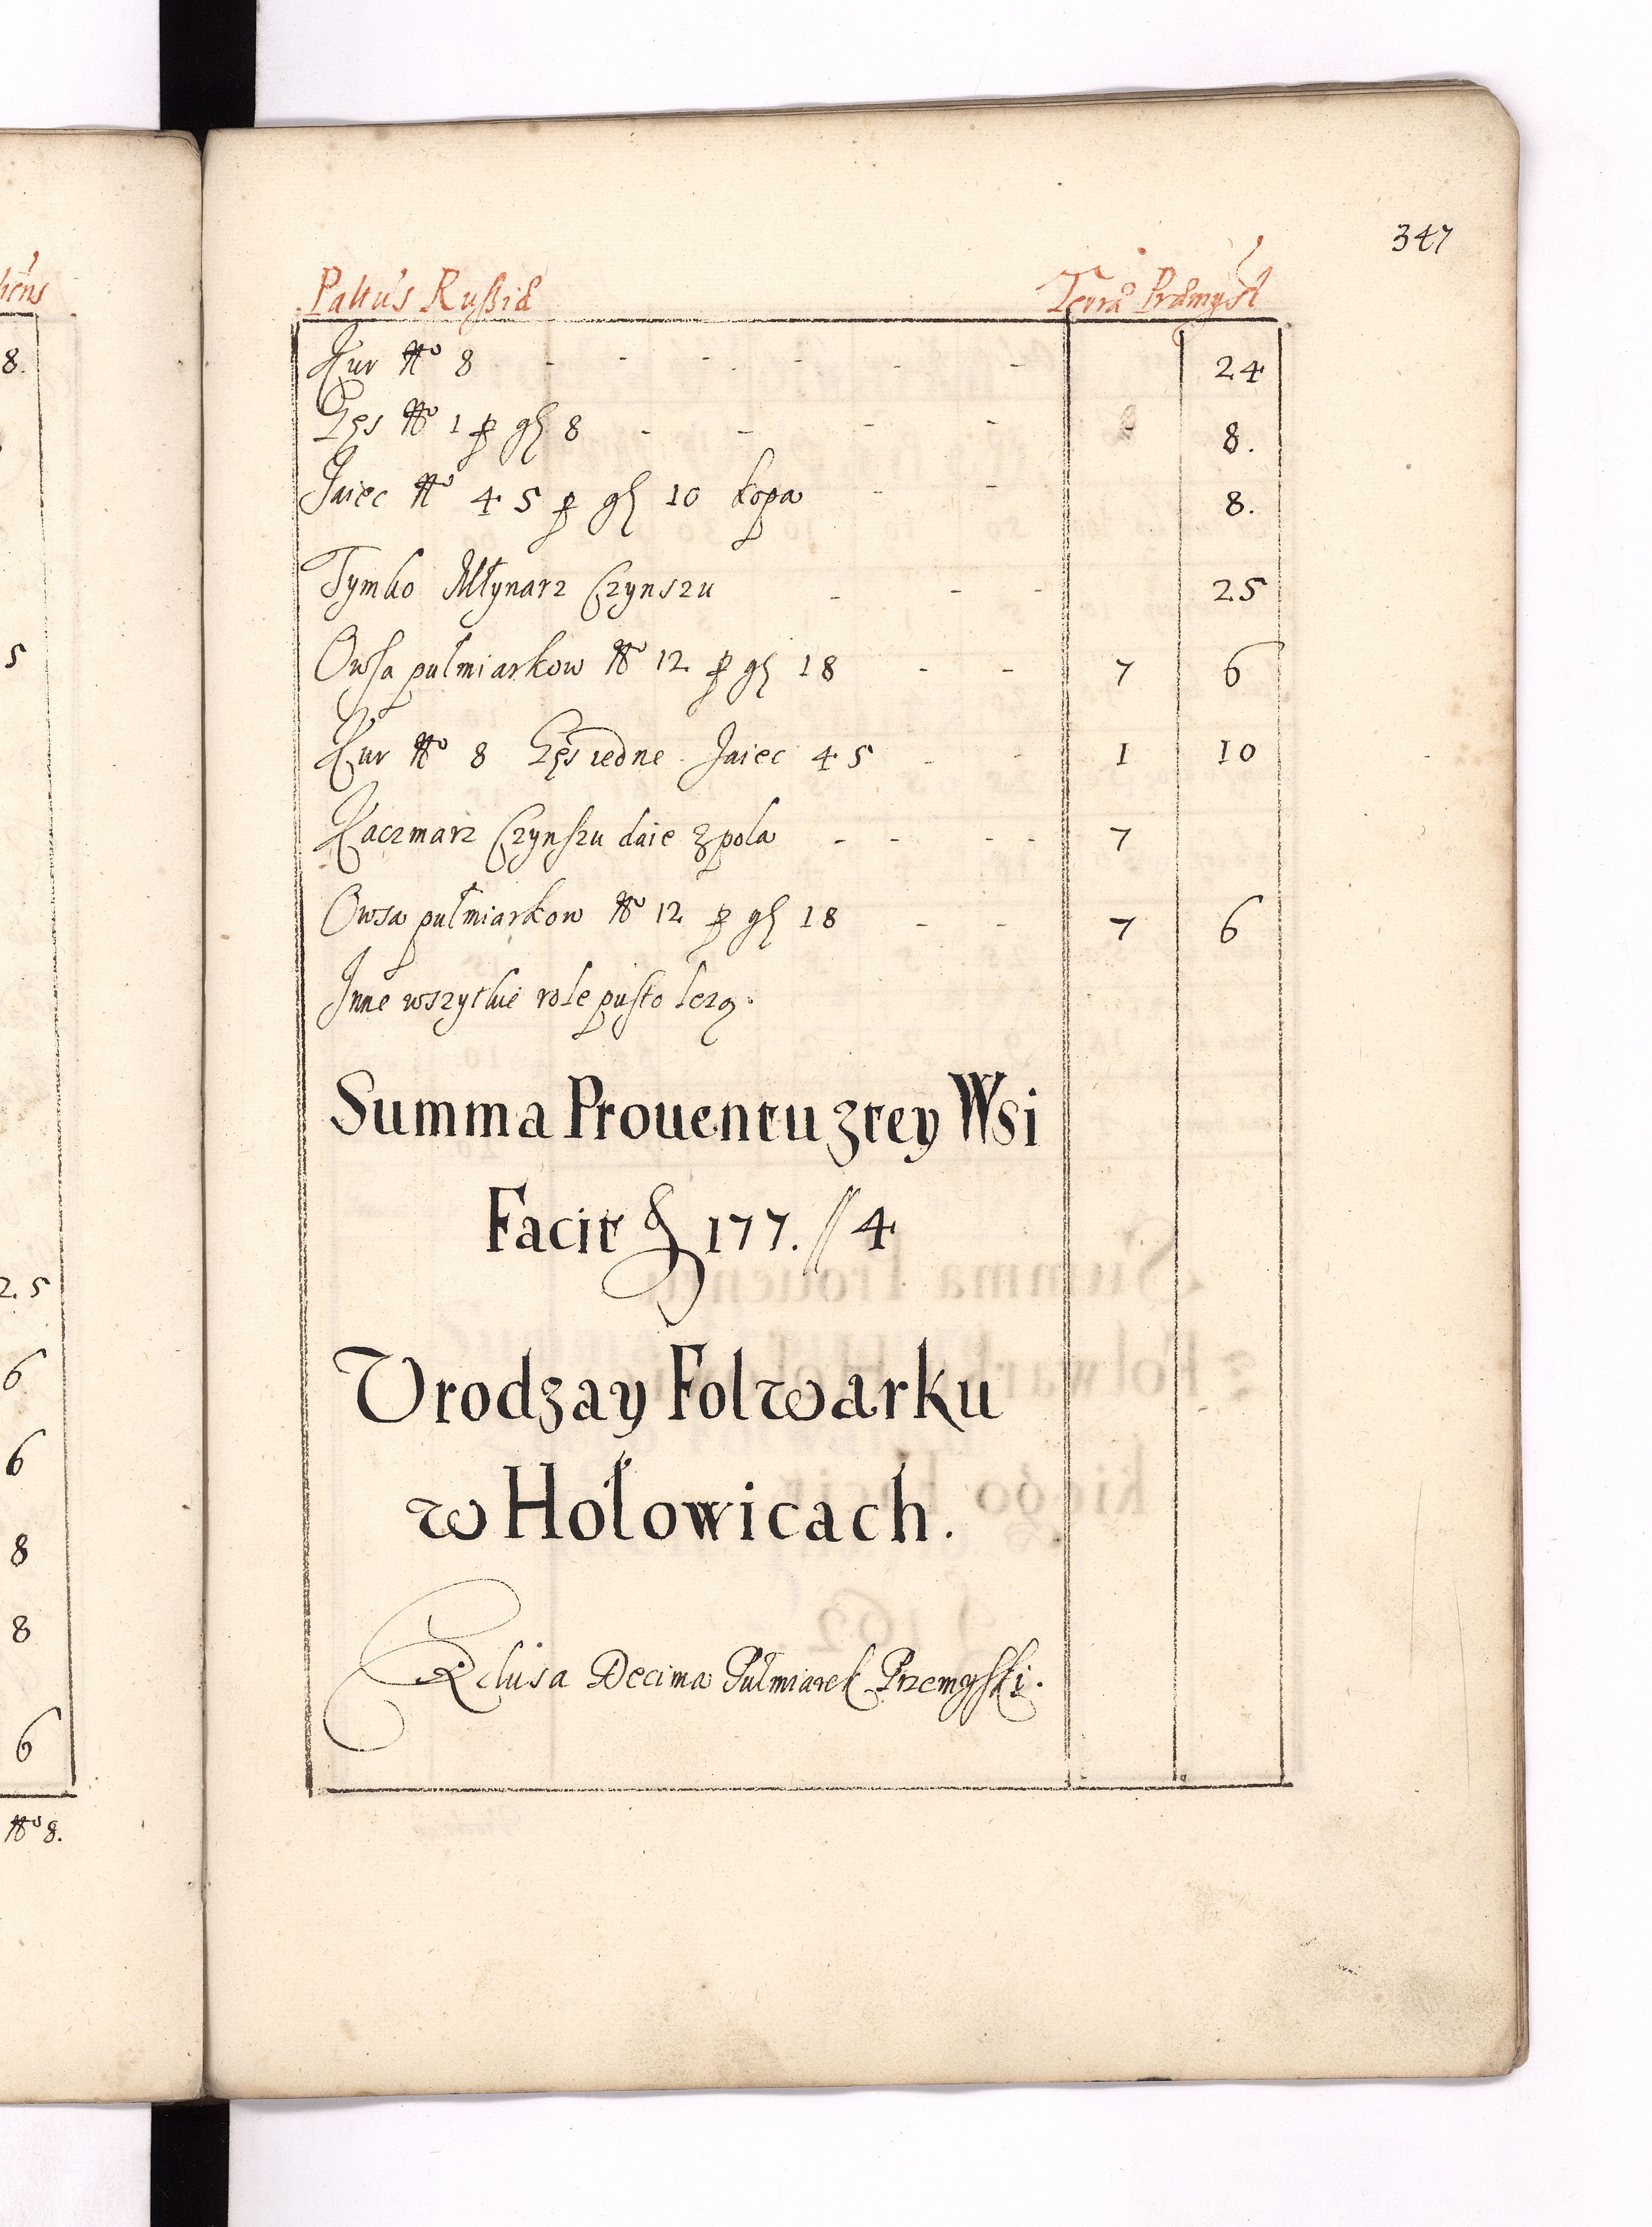 347
Paltus Russiæ Terræ Præmysl
Kur No 8 - - - - - - 24
Gęs No 1 p gl 8 - - - - 8.
Jaiec No 45 p gl 10 kopa - - 8.
Tymko Młynarz Czynszu - - - 25
Owsa pułmiarkow No 12 p gl 18 - - 7 6
Kur No 8 Gęs iedne Jaiec 45 - - 1 10
Kaczmarz Czynszu daie z pola - - - - 7
Owsa pułmiarkow No 12 p gl 18 - - 7 6
Inne wszytkie role pusto lezą.
Summa Prouentu z tey Wsi
Facit 177. // 4
Vrodzay Folwarku
w Hołowicach.
Reclusa Decima Pułmiarek Przemyski.
liens
8.
5
2.5
6
6
8
8
6
No 8.